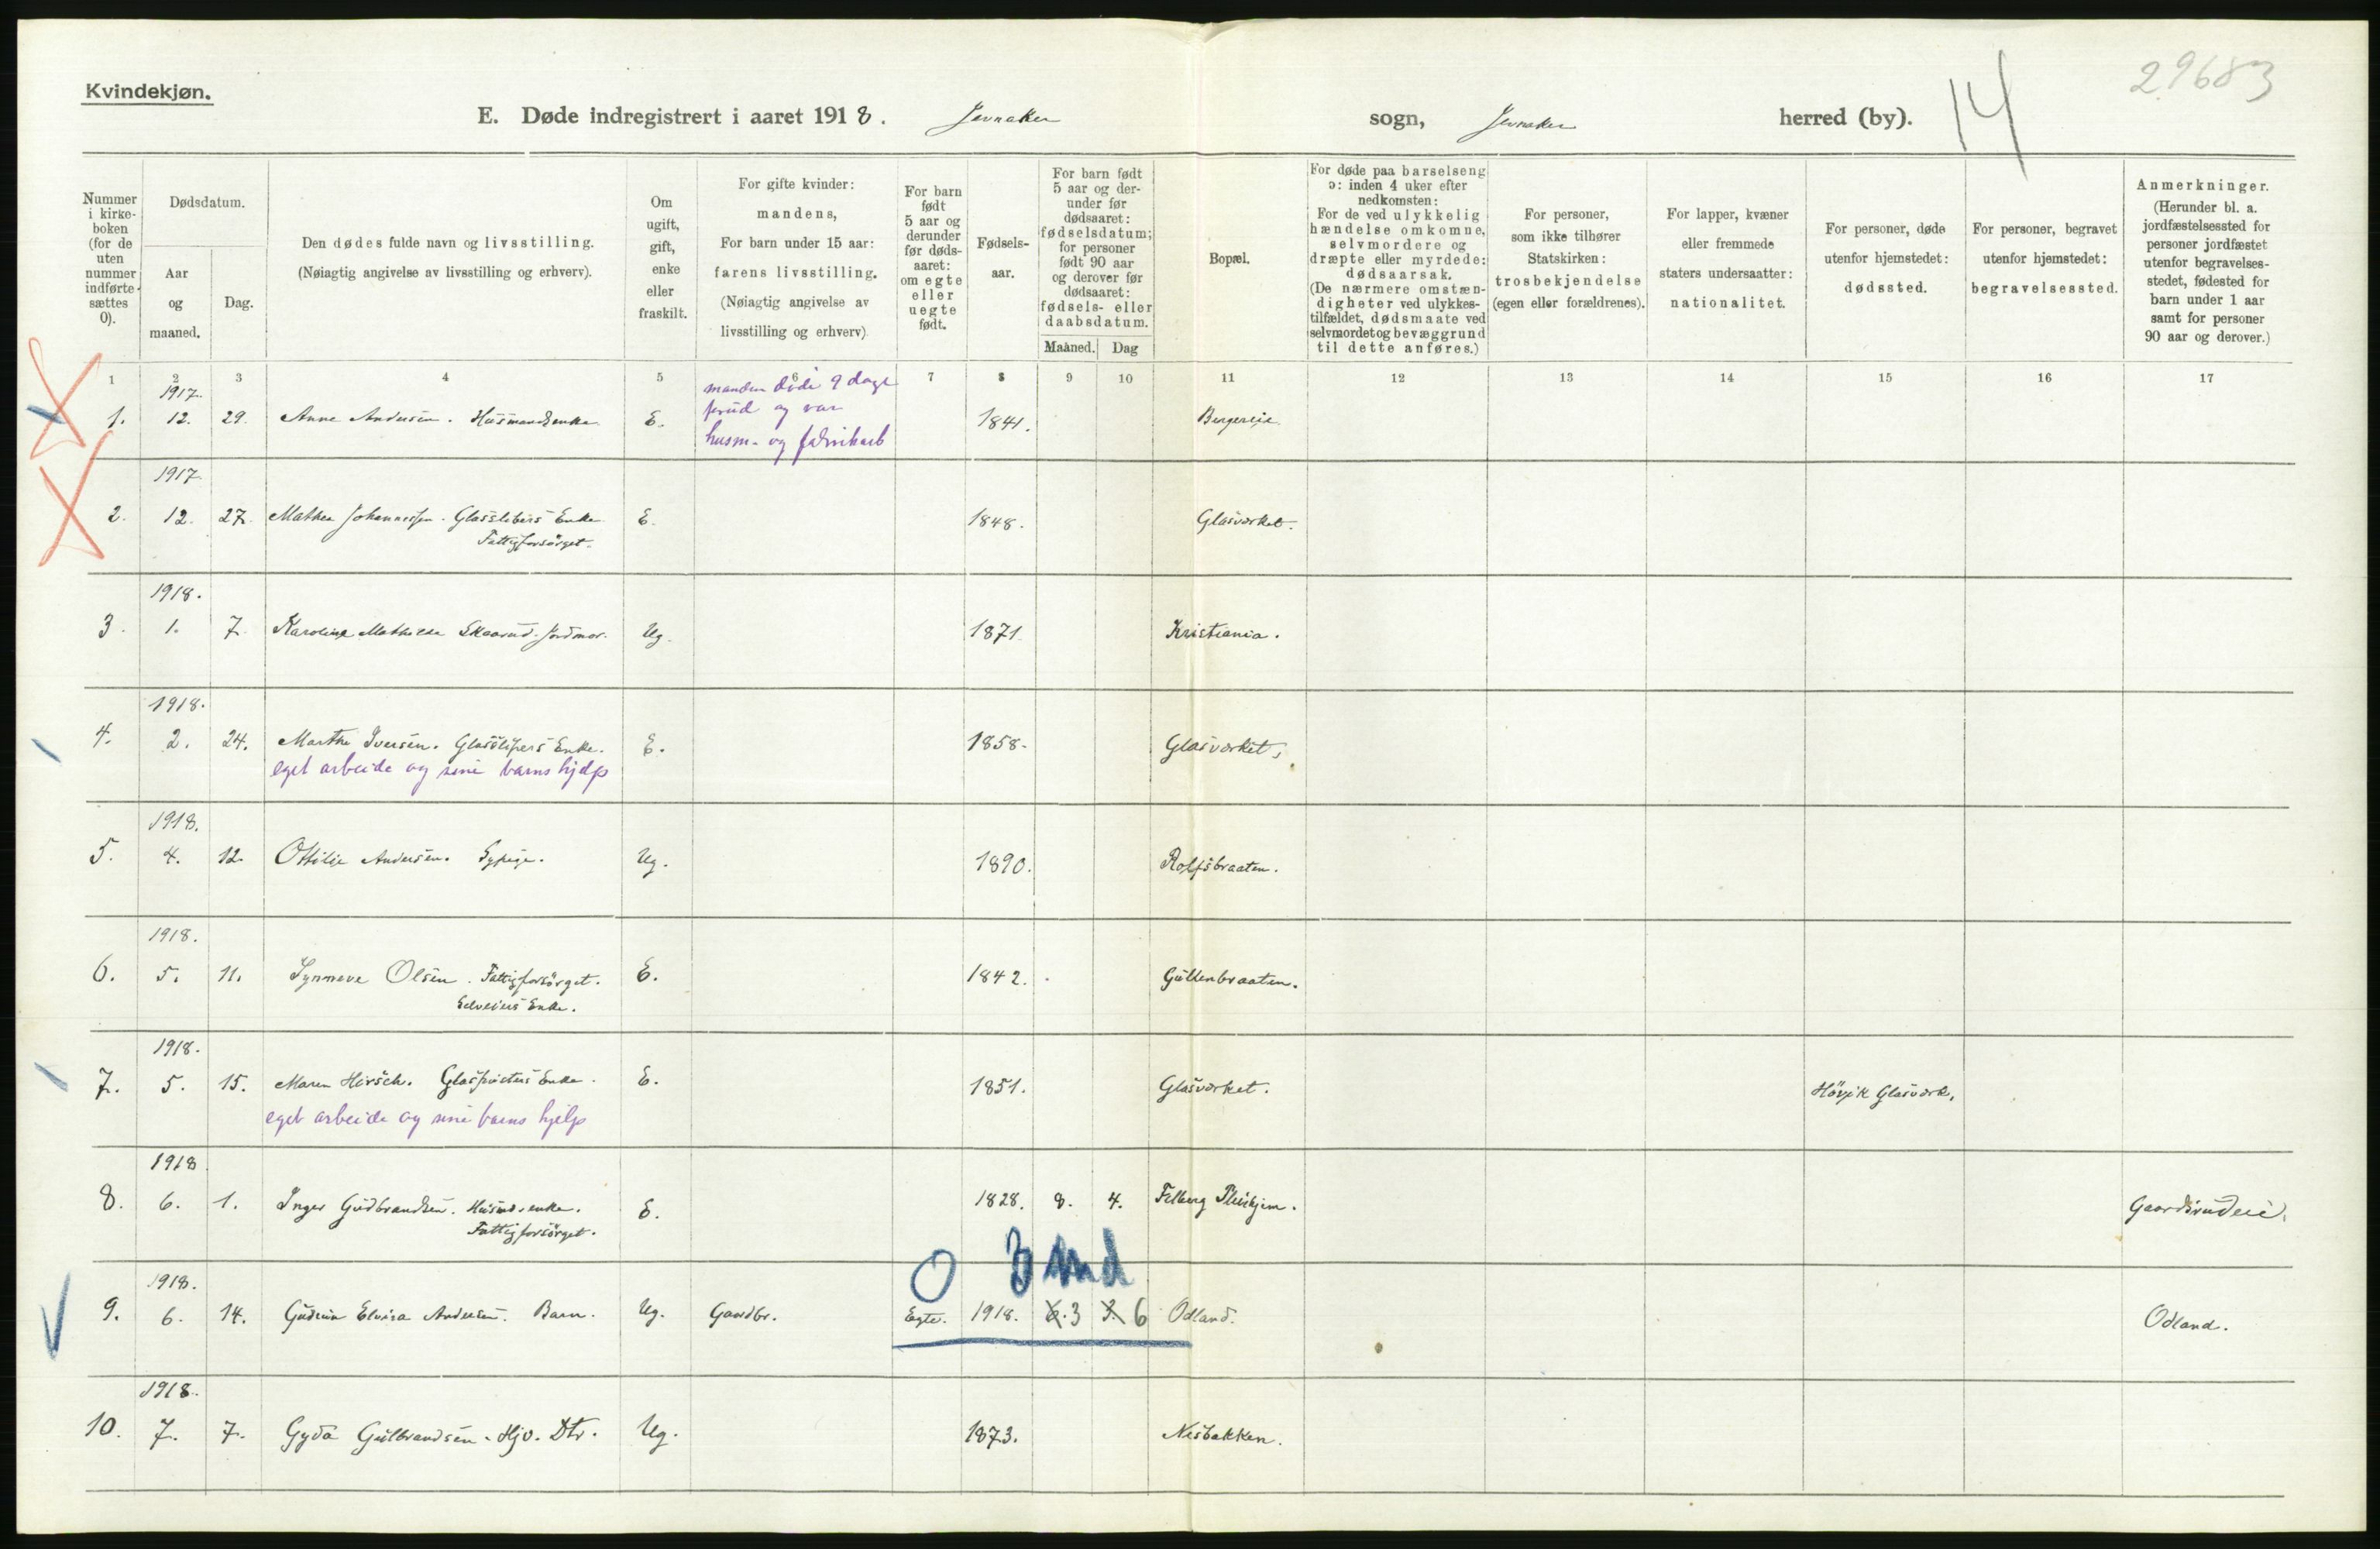 29683
14
Kvindekjøn.
E. Døde indregistrert i aaret 1918. Jevnaker sogn, Jevnaker herred (by).
Nummer i kirke-boken (for de uten nummer indførte sættes 0).
Dødsdatum.
Aar og maaned.
Dag.
Den dødes fulde navn og livsstilling.
(Nøiagtig angivelse av livsstilling og erhverv).
Om ugift, gift, enke eller fraskilt.
For gifte kvinder: mandens,
For barn under 15 aar: farens livsstilling.
(Nøiagtig angivelse av livsstilling og erhverv)
For barn født 5 aar og derunder før døds-aaret: om egte eller uegte født.
Fødsels-aar.
For barn født 5 aar og der-under før dødsaaret: fødselsdatum; for personer født 90 aar og derover før dødsaaret: fødsels- eller daabsdatum.
Maaned. Dag
Bopæl.
For døde paa barselseng ɔ: inden 4 uker efter nedkomsten:
For de ved ulykkelig hændelse omkomne, selvmordere og dræpte eller myrdede: dødsaarsak.
(De nærmere omstæn-digheter ved ulykkes-tilfældet, dødsmaate ved selvmordet og bevæggrund til dette anføres.)
For personer, som ikke tilhører Statskirken: trosbekjendelse (egen eller forældrenes).
For lapper, kvæner eller fremmede staters undersaatter: nationalitet.
For personer, døde utenfor hjemstedet: dødssted.
For personer, begravet utenfor hjemstedet: begravelsessted.
Anmerkninger.
(Herunder bl. a. jordfæstelsessted for personer jordfæstet utenfor begravelses-stedet, fødested for barn under 1 aar samt for personer 90 aar og derover.)
1 2 3 4 5 6 7 8 9 10 11 12 13 14 15 16 17
1917.
manden døde 9 dage
forud og var
husm- og fabrikarb
1. 12. 29. Anne Andersen. Husmandsenke E. 1841. Bergereie.
1917.
2. 12. 27. Mathea Johannessen. Glasslibers Enke E. 1848. Glasværket.
Fattigforsørget.
1918.
3. 1. 7. Karoline Mathilde Skaarud. Jordmor. Ug. 1871. Kristiania.
1918.
4. 2. 24. Marthe Iversen. Glasslipers Enke. E. 1858. Glasværket.
eget arbeide og sine barns hjelp
1918.
5. 4. 12. Ottilie Andersen. Sypige. Ug. 1890. Rolfsbraaten.
1918.
6. 5. 11. Synneve Olsen. Fattigforsørget. E. 1842. Gullenbraaten.
Selveiers Enke.
1918.
7. 5. 15. Maren Hirsch. Glaspusters Enke. E. 1851. Glasværket. Høvik Glasværk.
eget arbeide og sine barns hjelp
1918
8. 6. 1. Inger Gudbrandsen. Husmd.enke. E. 1828. 8. 4. Pleiehjem. Gaardsrudeie.
Fattigforsørget.
0 3 md
1918.
9. 6. 14. Gudrun Elvira Andersen. Barn. Ug. Gaardbr. Egte. 1918. 6. 3 3. 6 Odland. Odland.
1918.
10. 7. 7. Gyda Gulbrandsen. Hjv. Dtr. Ug. 1873. Nesbakken.